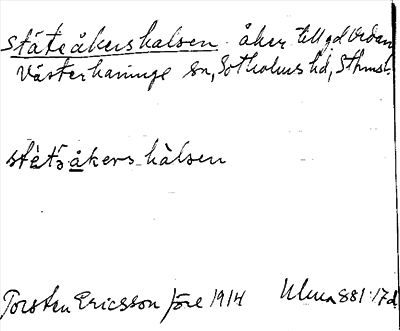 ståteåkershalsen. åker till gd Vedan
Västerhaninge sn, Sotholms hd, Sthms l.
stèt̀såkers hàlsen
Torsten Ericsson före 1914 Ulma 881:17d